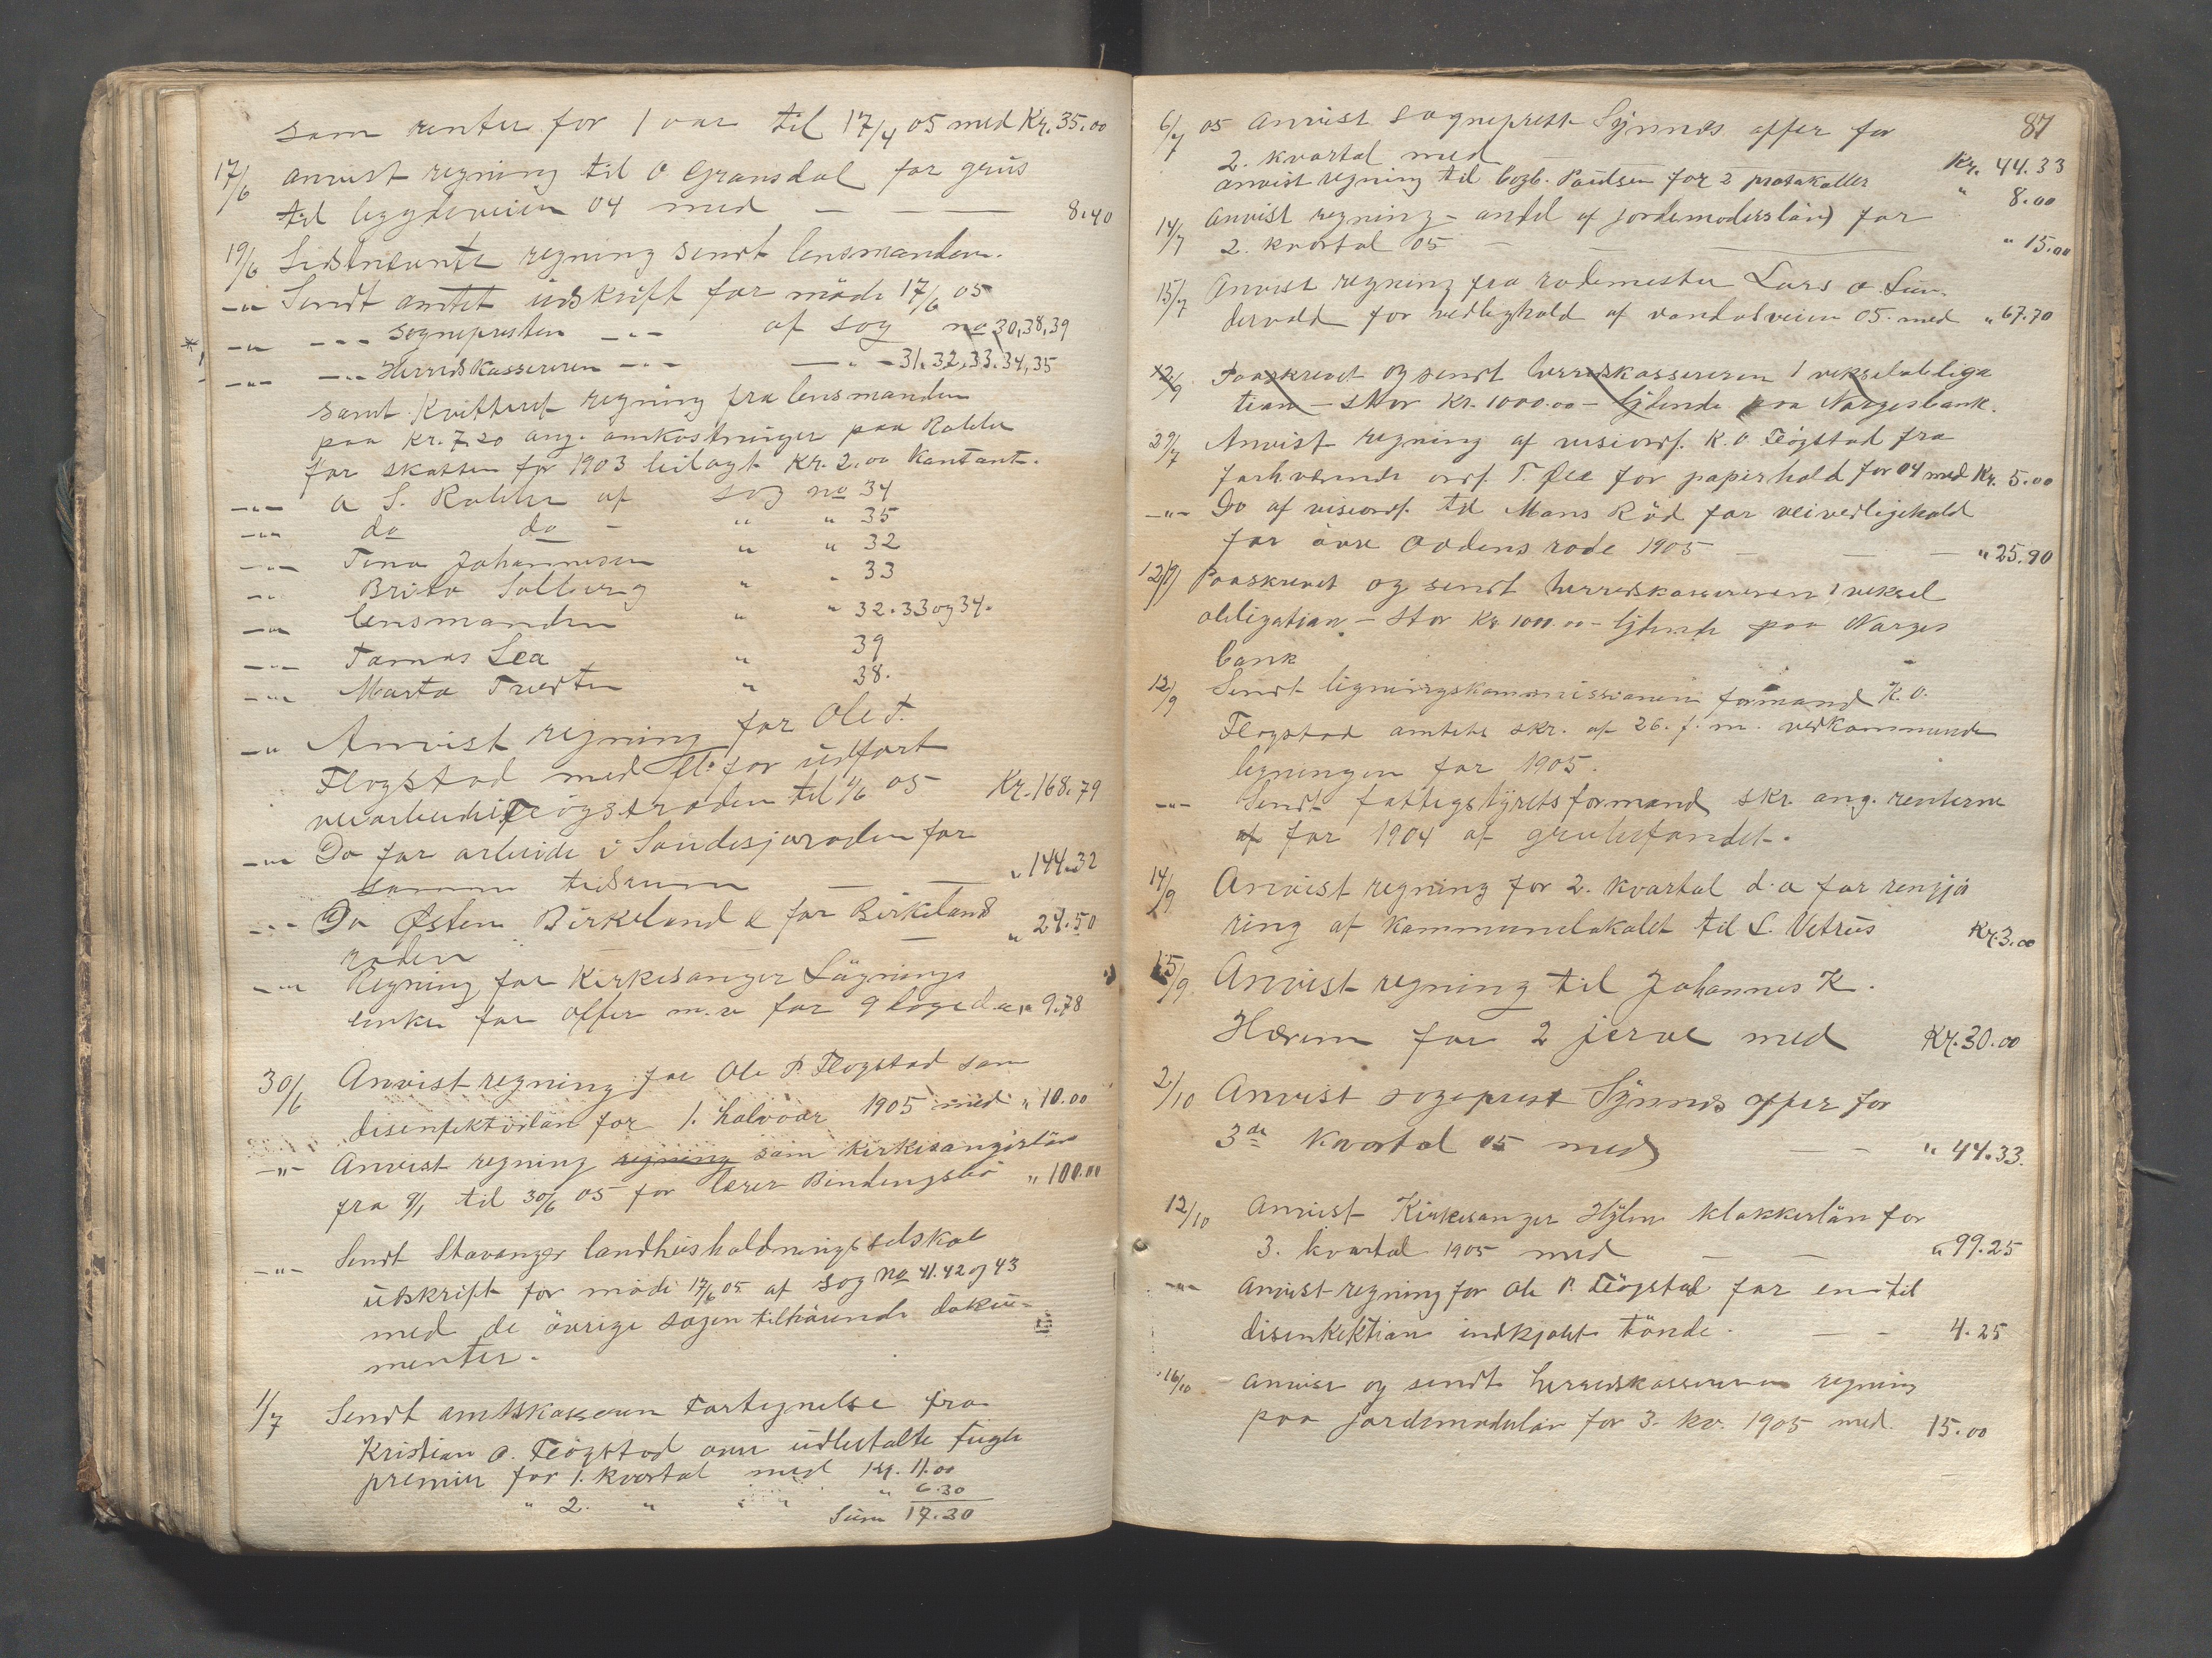 som renter for 1 aar til 17/4 05 med Kr. 35.00
17/6 anvist regning til O Gransdal for grus
til bygdeveien 04 med — — — 8.40
19/6 Sidstnevnte regning sendt lensmanden.
-"- Sendt amtet udskrift for möde 17/6 05
-"- -"- Sognepresten -"- af sag no 30,38,39
-"- -"- Herredskassereren -"- -"- 31.32.33.34,35
samt kvitteret regning fra lensmanden
paa Kr. 7.20 ang. omkostninger paa Rabbe
for skatten for 1903 bilagt Kr. 2.00 kontant.
-"- A S. Rabbe af sag no 34
-"- do do - " " 35
-"- Tina Johannesen " " 32
-"- Brita Solberg " " 33
-"- lensmanden " " 32.33 og 34.
-"- Tomas Lea " 39
-"- Marta Tveden " 38.
-" Anvist regning for Ole T.
Flogstad med fl. for udfört
veiarbeide i Flögstroden til 1/6 05 Kr. 168.79
-"- Do for arbeide i Sandesjøroden for
samme tidsrum — — " 144.32
-"- Do Østen Birkeland for Birkeland
roden — " 24.50
-"- Regning for Kirkesanger Lögnings
enke for offer m.v for 9 dage d.a " 9.78
30/6 Anvist regning for Ole P. Flogstad som
disenfektörlön for 1. halvaar 1905 med " 10.00
-"- Anvist regning regning som kirkesangerlön
fra 9/1 til 30/6 05 for lærer Bindingsbö " 100.00
-"- Sendt Stavanger landhusholdningsselskab
udskrift for möde 17/6 05 af sag no 41.42 og 43
med de övrige sagen tilhörende doku-
menter.
1/7 Sendt amtskasseren Fortegnelse fra
Kristian O. Flögstad over udbetalte fugle
premier for 1. kvartal med Kr. 11.00
" 2. " " " 6.30
Sum 17.30
87
6/7 05 anvist sogneprest Synnes offer for
2. kvartal med — Kr. 44.33
anvist regning til bogb. Poulsen for 2 protokoller " 8.00
14/7 Anvist regning - andel af jordemoderslön for
2. kvartal 05 — — " 15.00
15/7 Anvist regning fra rodemester Lars O. Sun-
dervold for vedlighold af vandalveien 05. med " 67.70
12/9. Paaskrevet og sendt herredskassereren 1 vekselobliga
tion - stor Kr. 1000.00 - lydende paa Norgesbank.
29/7 Anvist regning af viseordf. K. O Flögstad fra
forhværende ordf. T. Lea for papirhold for 04 med Kr. 5.00
-"- Do af viseordf. til Mans Röd for veivedligehold
for övre Aadens rode 1905 — — — " 25.90
12/9 Paaskrevet og sendt herredskassereren 1 veksel
obligation - stor Kr 1000.00 - lydende paa Norges
bank
12/9 Sendt ligningskommissionens formand K. O.
Flogstad amtets skr. af 26. f. m. vedkommende
ligningen for 1905.
-"- Sendt fattigstyrets formand skr. ang. renterne
af for 1904 af grubefondet.
14/9 Anvist regning for 2. kvartal d.a for rengjö
ring af kommunelokalet til L. Vetrus Kr. 3.00
15/9. Anvist regning til Johannes K.
Havrem for 2 jerve med Kr. 30.00
2/10 Anvist sogneprest Synnes offer for
3de kvartal 05 med — — " 44.33.
12/10 Anvist Kirkesanger Hylen klokkerlön for
3. kvartal 1905 med — — " 99.25
-"- Anvist regning for Ole P. Flögstad for en til
disenfektion indkjöbt tönde. — - 4.25
16/10 anvist og sendt herredskassereren regning
paa jordemoderlön for 3. kv. 1905 med. 15.00